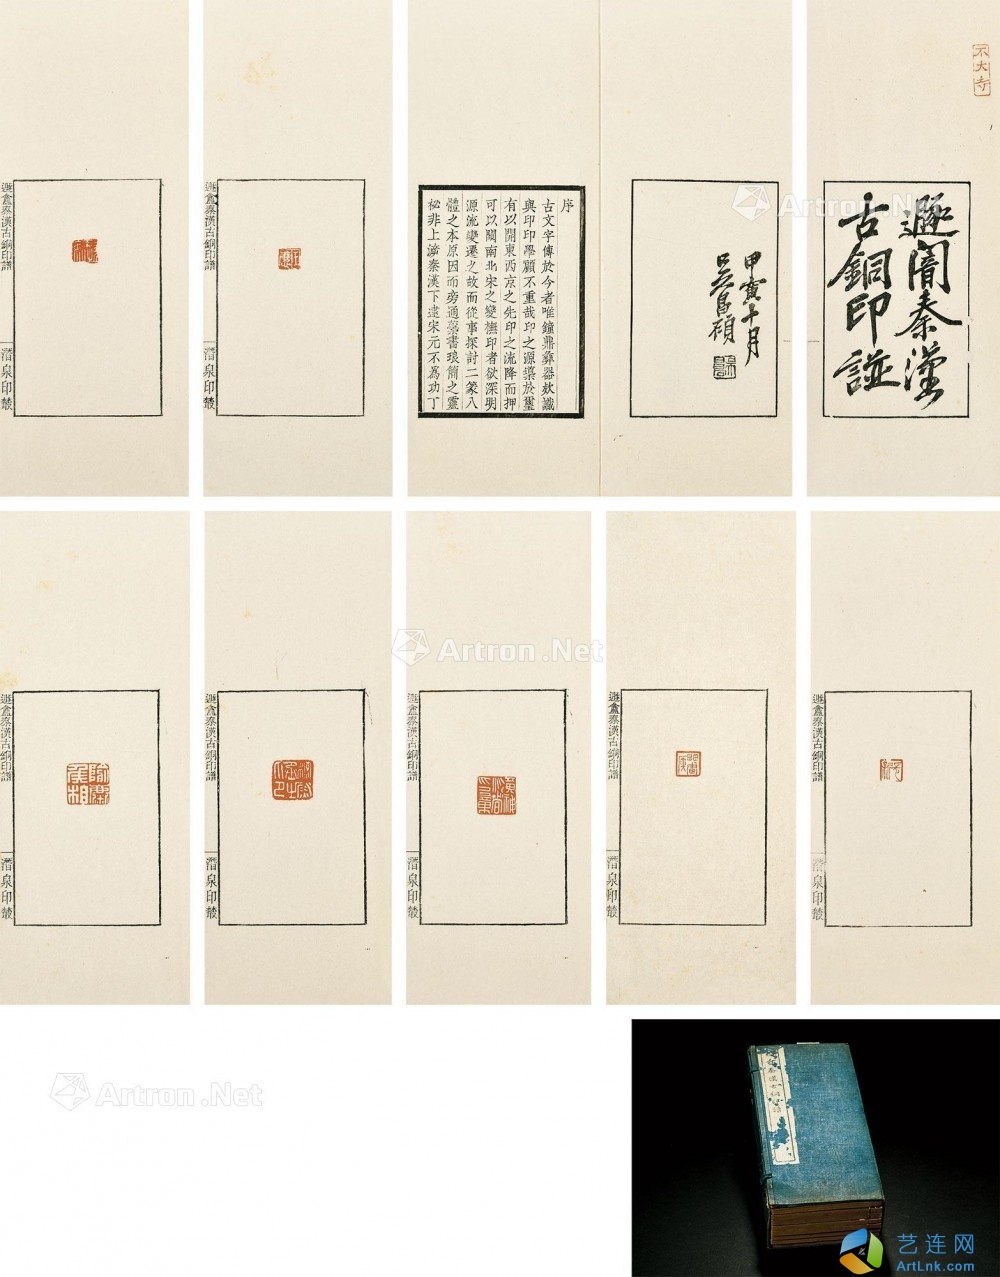 不大寺
遯闇秦漢
古銅印譜
甲寅十月
吳昌碩
序
古文字傳於今者唯鐘鼎彝器欵識
與印印學顧不重哉印之源槼於璽
有以開東西京之先印之流降而押
可以闚南北宋之變撫印者欲深明
源流變遷之故而從事探討二篆八
體之本原因而旁通藁書琅簡之靈
祕非上溯秦漢下逮宋元不為功丁
遯盦秦漢古銅印譜
潛泉印叢
遯盦秦漢古銅印譜
潛泉印叢
遯盦秦漢古銅印譜
潛泉印叢
遯盦秦漢古銅印譜
潛泉印叢
遯盦秦漢古銅印譜
潛泉印叢
遯盦秦漢古銅印譜
潛泉印叢
遯盦秦漢古銅印譜
潛泉印叢
秦漢古銅印譜
Artron.Net
Artron.Net
Artron.Net
Artron.Net
艺连网
ArtLnk.com